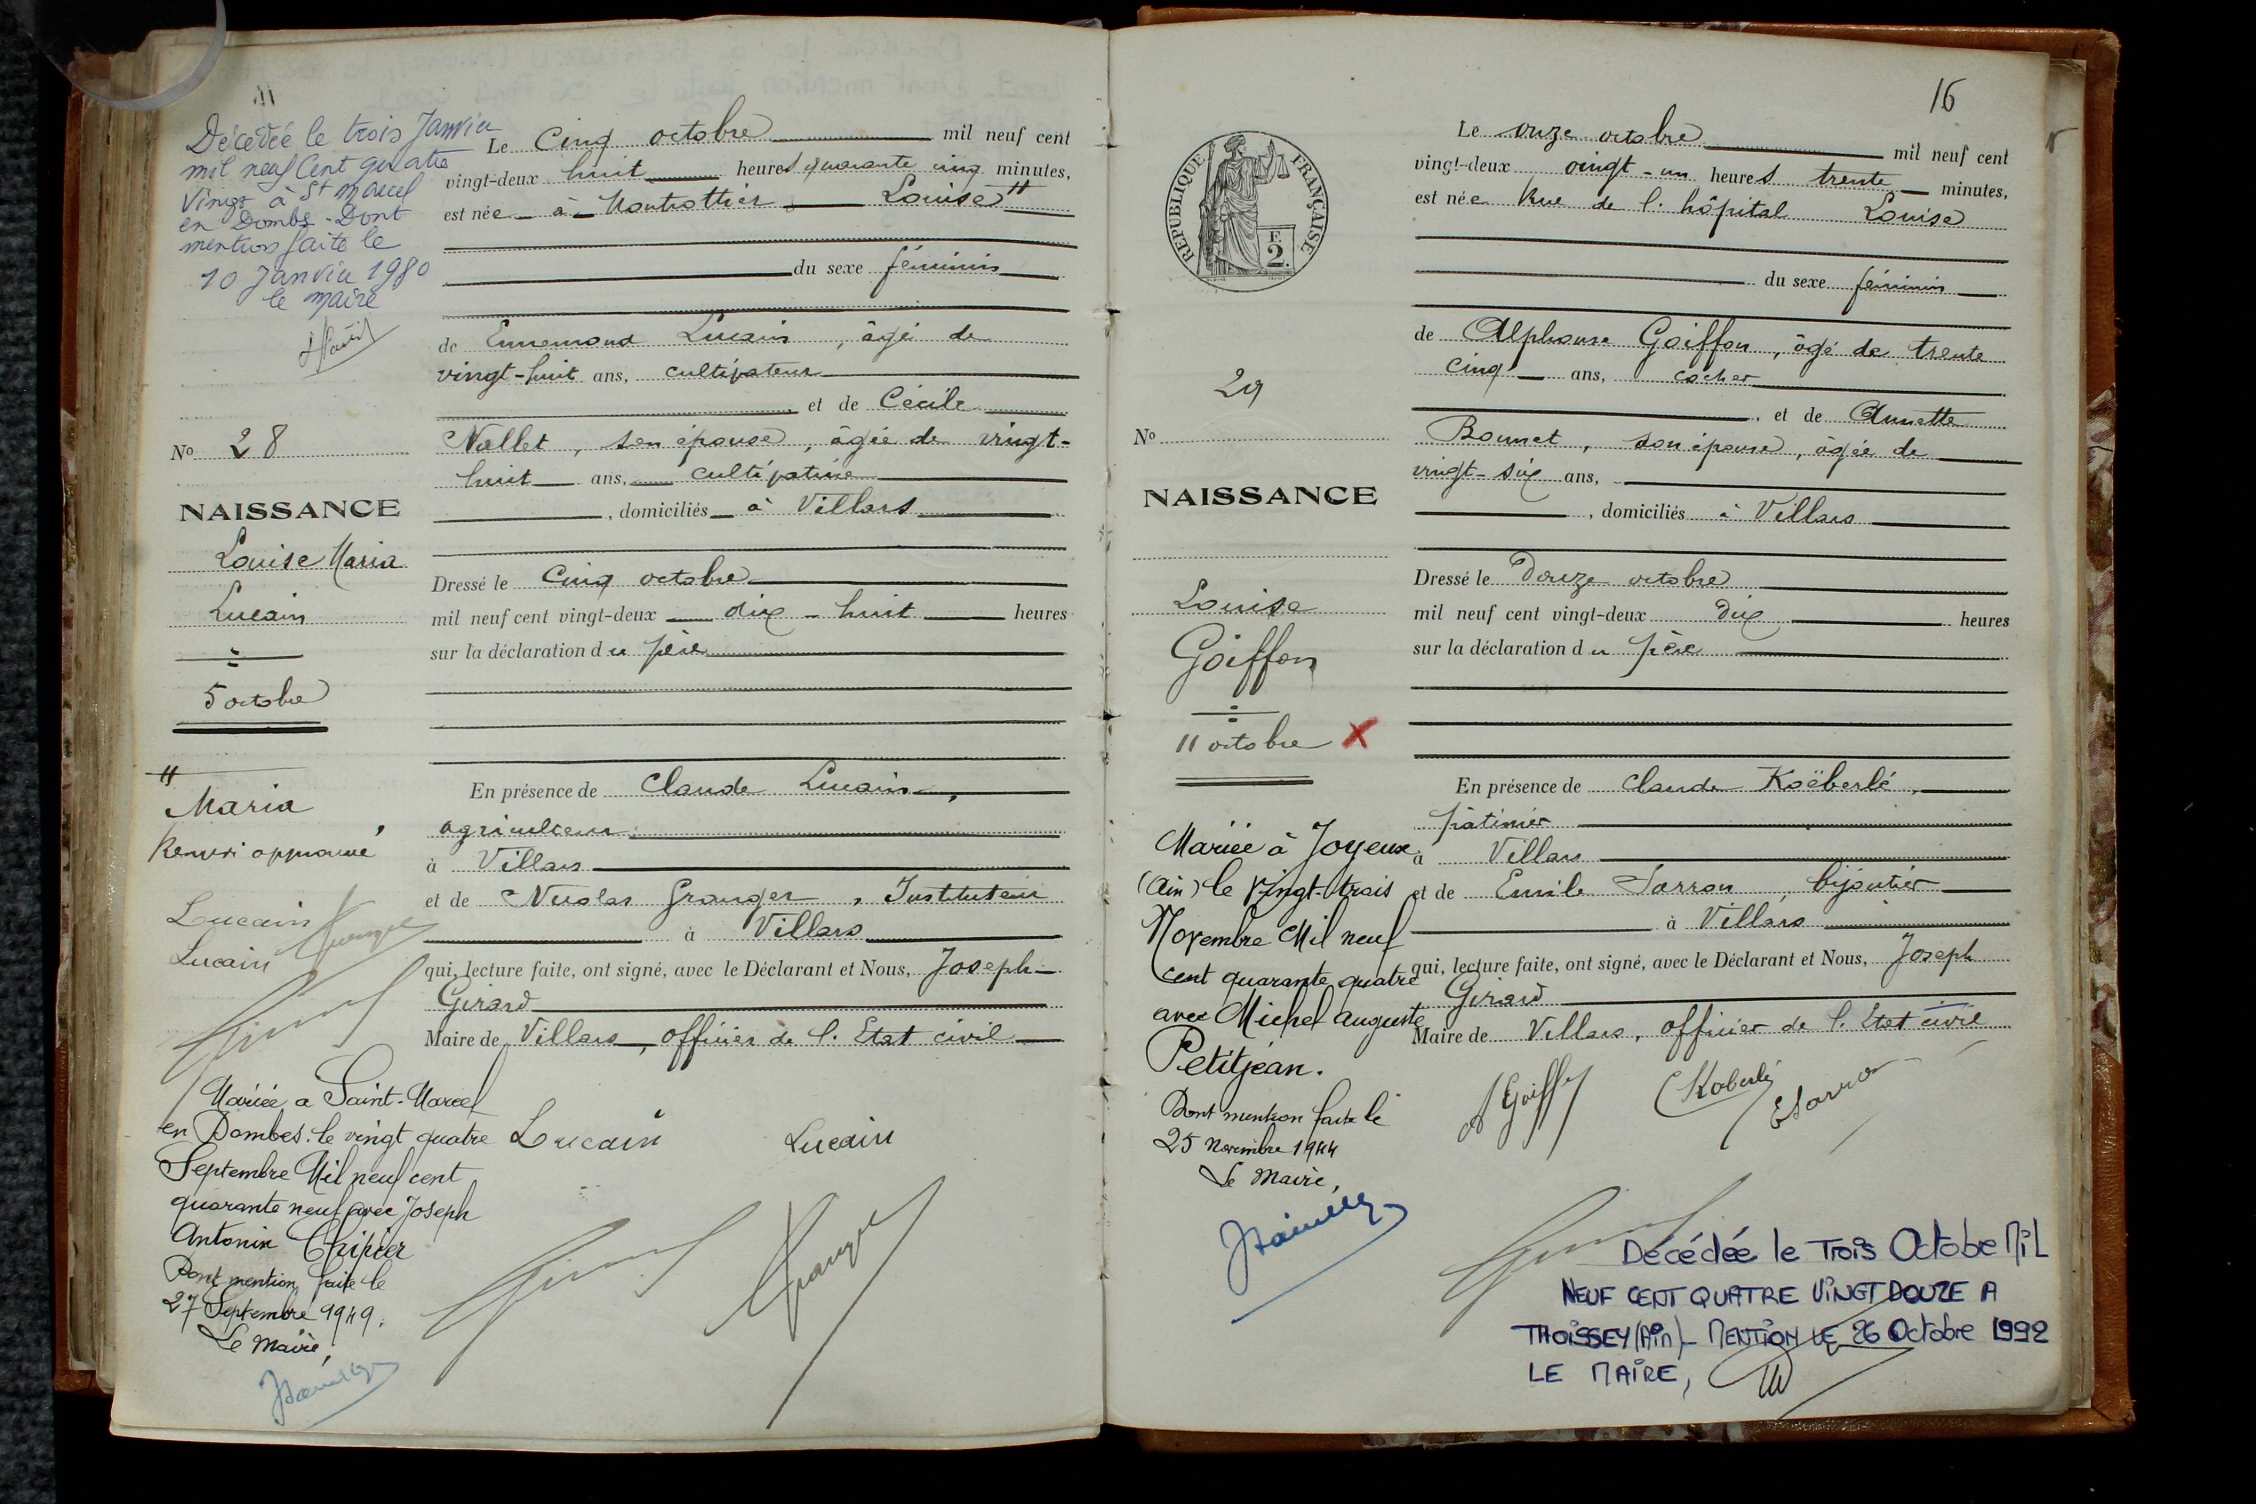 Décédée le trois Janvier
mil neuf Cent quatre
Vingt à St Marcel
en Dombes. Dont
mention faite le
10 Janvier 1980
le maire
No 28
NAISSANCE
Louise Maria
Lucain
5 octobre
"
Maria
Renvoi approuvé
Lucain Granger
Lucain
Mariée a Saint-Marcel
en Dombes le vingt quatre
Septembre Mil neuf cent
quarante neuf avec Joseph
Antonin Chipier
Dont mention faite le
27 Septembre 1949.
Le Maire,
Le Cinq octobre mil neuf cent
vingt-deux huit heures quarante cinq minutes,
est née à Montrottier Louise "
du sexe féminin
de Ennemond Lucain, âgé de
vingt-huit ans, cultivateur
et de Cécile
Nallet, son épouse, âgée de vingt-
huit ans, cultivatrice
, domiciliés à Villars
Dressé le Cinq octobre
mil neuf cent vingt-deux dix-huit heures
sur la déclaration du père
En présence de Claude Lucain,
agriculteur
à Villars
et de Nicolas Granger, Instituteur
à Villars
qui, lecture faite, ont signé, avec le Déclarant et Nous, Joseph
Girard
Maire de Villars, officier de l'Etat civil
Lucain Lucain
Granger
16
REPUBLIQUE FRANÇAISE
F.
2.
29
No
NAISSANCE
Louise
Goiffon
11 octobre X
Mariée à Joyeux
(Ain) le Vingt-trois
Novembre Mil neuf
cent quarante quatre
avec Michel Auguste
Petitjean.
Dont mention faite le
25 Novembre 1944
Le Maire,
Le onze octobre mil neuf cent
vingt-deux vingt-un heures trente minutes,
est née Rue de l'hôpital Louise
du sexe féminin
de Alphonse Goiffon, âgé de trente
cinq ans, cocher
, et de Annette
Bonnet, son épouse, âgée de
vingt-six ans,
, domiciliés à Villars
Dressé le Douze octobre
mil neuf cent vingt-deux Dix heures
sur la déclaration du père
En présence de Claude Koëberlé,
pâtissier
à Villars
et de Emile Sarron, bijoutier
à Villars
qui, lecture faite, ont signé, avec le Déclarant et Nous, Joseph
Girard
Maire de Villars, officier de l'Etat civil
A Goiffon C Koberlé E Sarron
Décédée le Trois Octobre MiL
NEUF CENT QUATRE VINGT DOUZE A
THOISSEY (Ain)- MENTION LE 26 Octobre 1992
LE MAIRE,